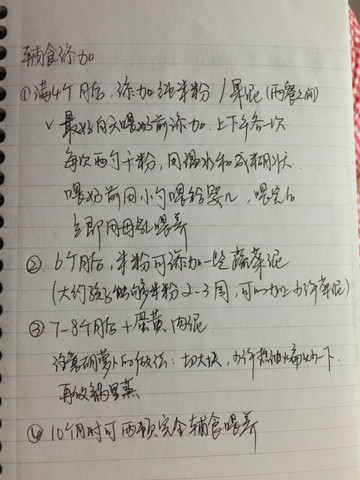 辅食添加
①满4个月后,添加纯米粉/果泥(两餐之间)
✓最好白天喂奶前添加,上下午各一次
每次两勺干粉,用温水和成糊状
喂奶前用小勺喂给婴儿,喂完后
立即用母乳喂养
②6个月后,米粉可添加一些蔬菜泥
(大约孩子纯米粉2-3周,可以加上少许菜泥)
③7-8个月后+蛋黄、肉泥
胡萝卜的做法:切大块,少许热油煸炒一下,
再放锅里蒸
④10个月时可两顿完全辅食喂养